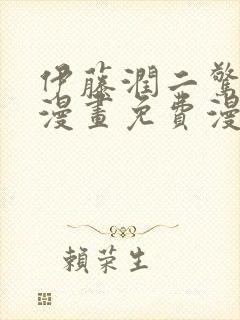 伊藤潤二驚
漫畫免費漫
賴荣生